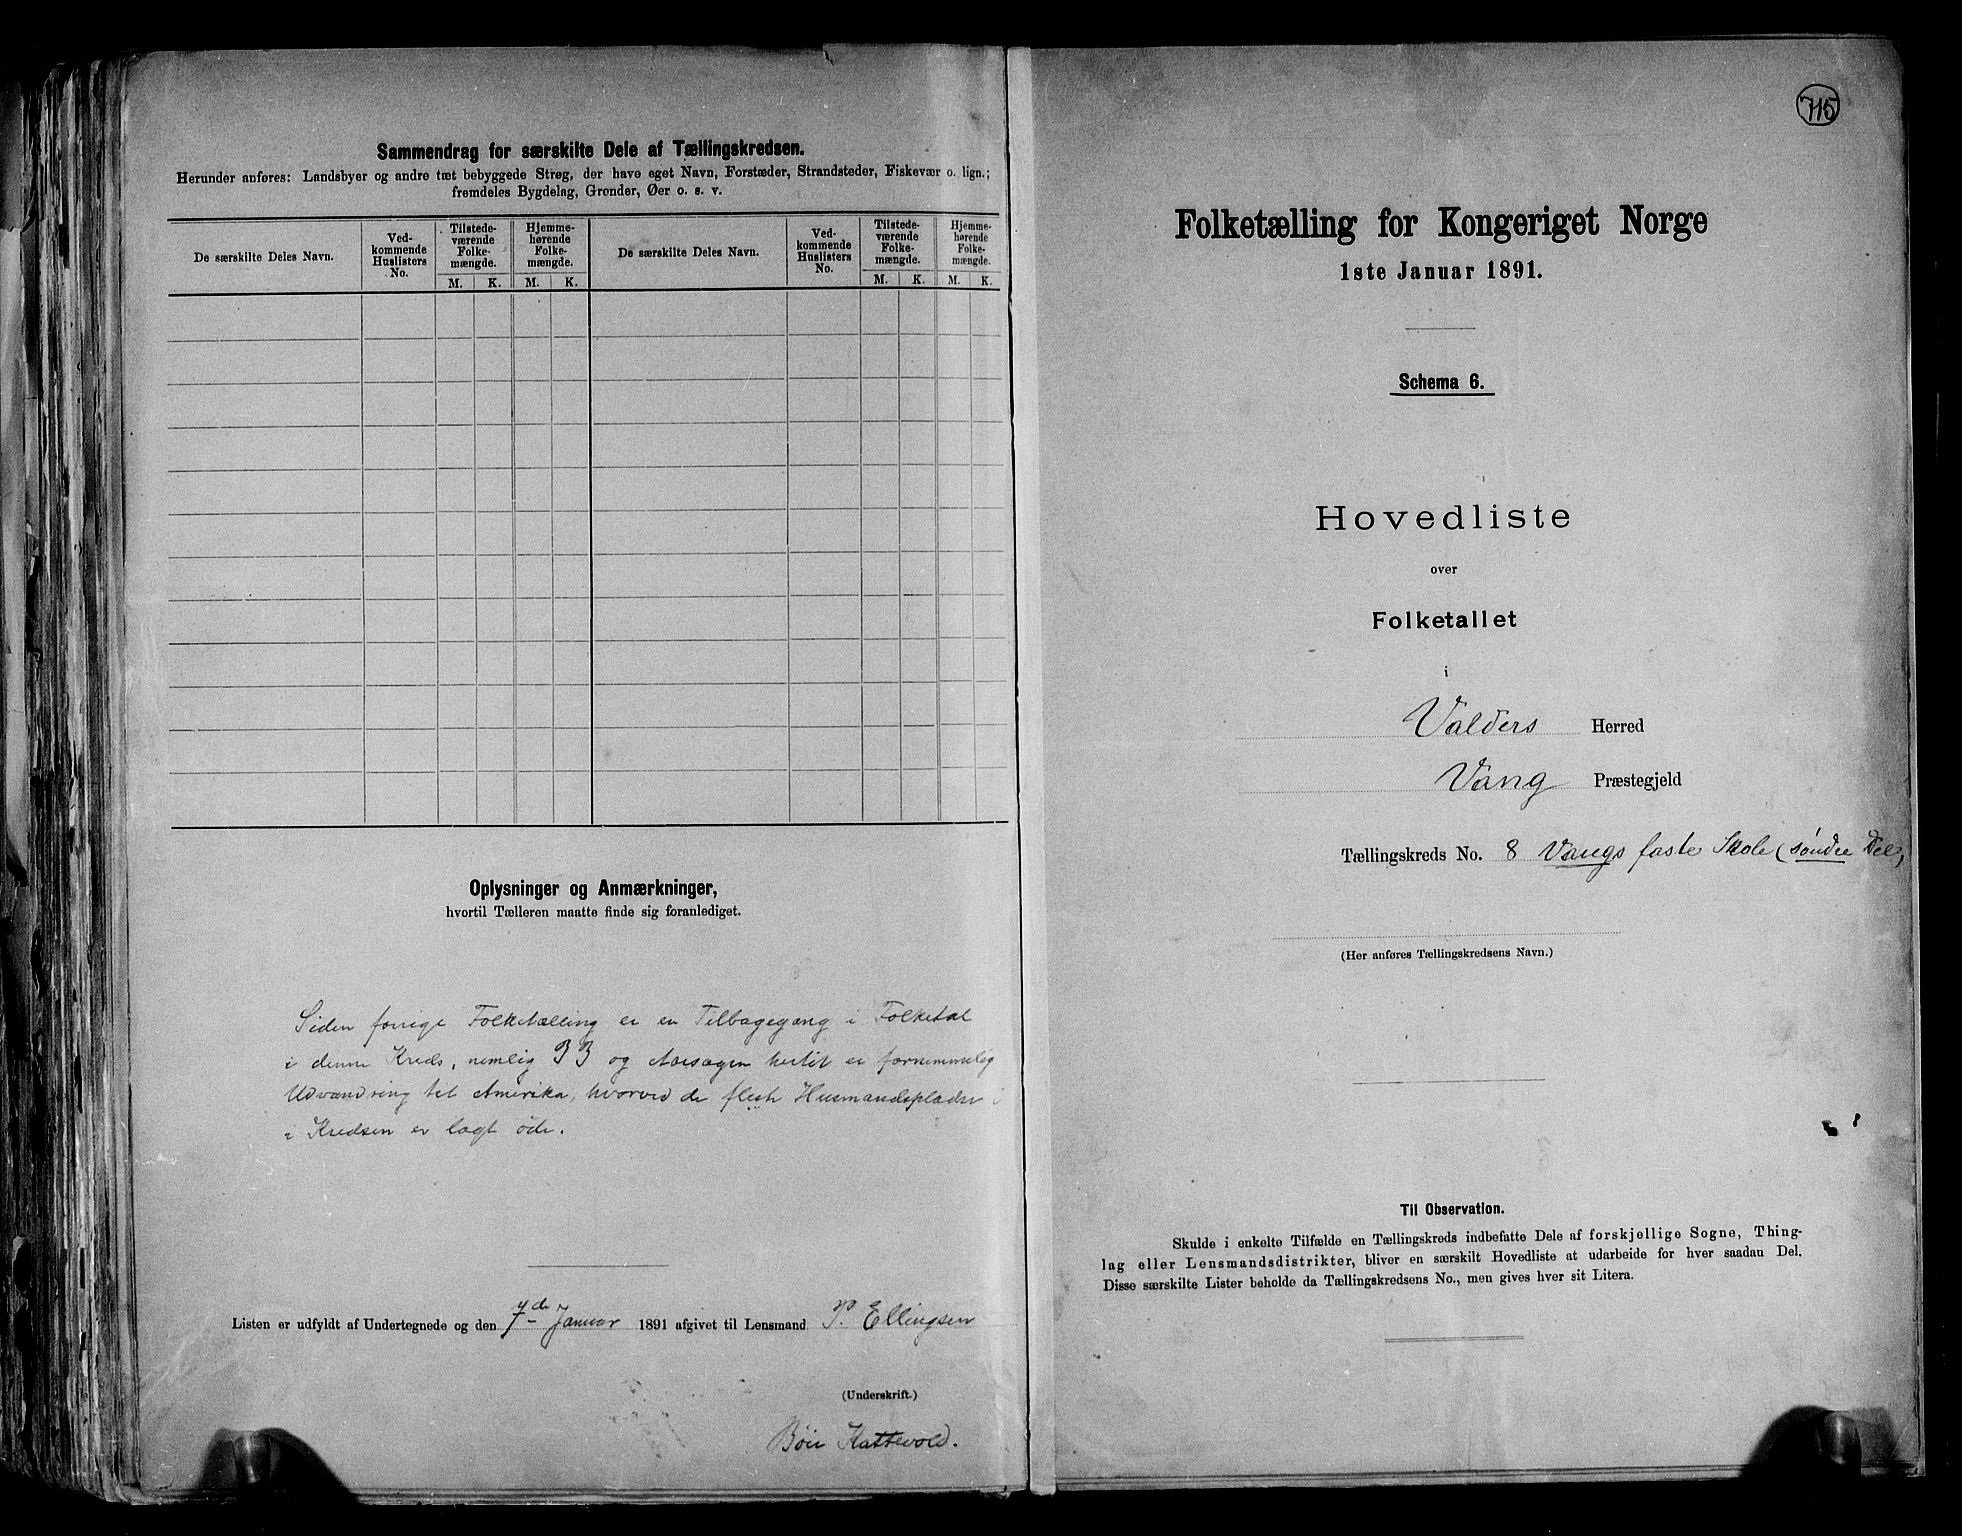 Sammendrag for særskilte Dele af Tællingskredsen.
Herunder anføres: Landsbyer og andre tæt bebyggede Strøg, der have eget Navn, Forstæder, Strandsteder, Fiskevær o. lign.;
fremdeles Bygdelag, Grender, Øer o. s. v.
De særskilte Deles Navn.
Ved-
kommende
Huslisters
No.
Tilstede-
værende
Folke-
mængde.
Hjemme-
hørende
Folke-
mængde.
De særskilte Deles Navn.
Ved-
kommende
Huslisters
No.
Tilstede-
værende
Folke-
mængde.
Hjemme-
hørende
Folke-
mængde.
M. K. M. K. M. K. M. K.
Oplysninger og Anmærkninger,
hvortil Tælleren maatte finde sig foranlediget.
Siden forrige Folketælling er en Tilbagegang i Folketal
i denne Kreds, nemlig 33 og Aarsagen hertil er fornemmelig
Udvandring til Amerika, hvorved de fleste Husmandspladse i
i Kredsen er lagt øde.
Listen er udfyldt af Undertegnede og den 7de Januar 1891 afgivet til Lensmand P. Ellingsen
(Underskrift.)
Kattevold.
715
Folketælling for Kongeriget Norge
1ste Januar 1891.
Schema 6.
Hovedliste
over
Folketallet
i
Valders Herred
Vang Præstegjeld
Tællingskreds No. 8 Vangs faste Skole (søndre Del,
(Her anføres Tællingskredsens Navn.)
Til Observation.
Skulde i enkelte Tilfælde en Tællingskreds indbefatte Dele af forskjellige Sogne, Thing-
lag eller Lensmandsdistrikter, bliver en særskilt Hovedliste at udarbeide for hver saadan Del.
Disse særskilte Lister beholde da Tællingskredsens No., men gives hver sit Litera.